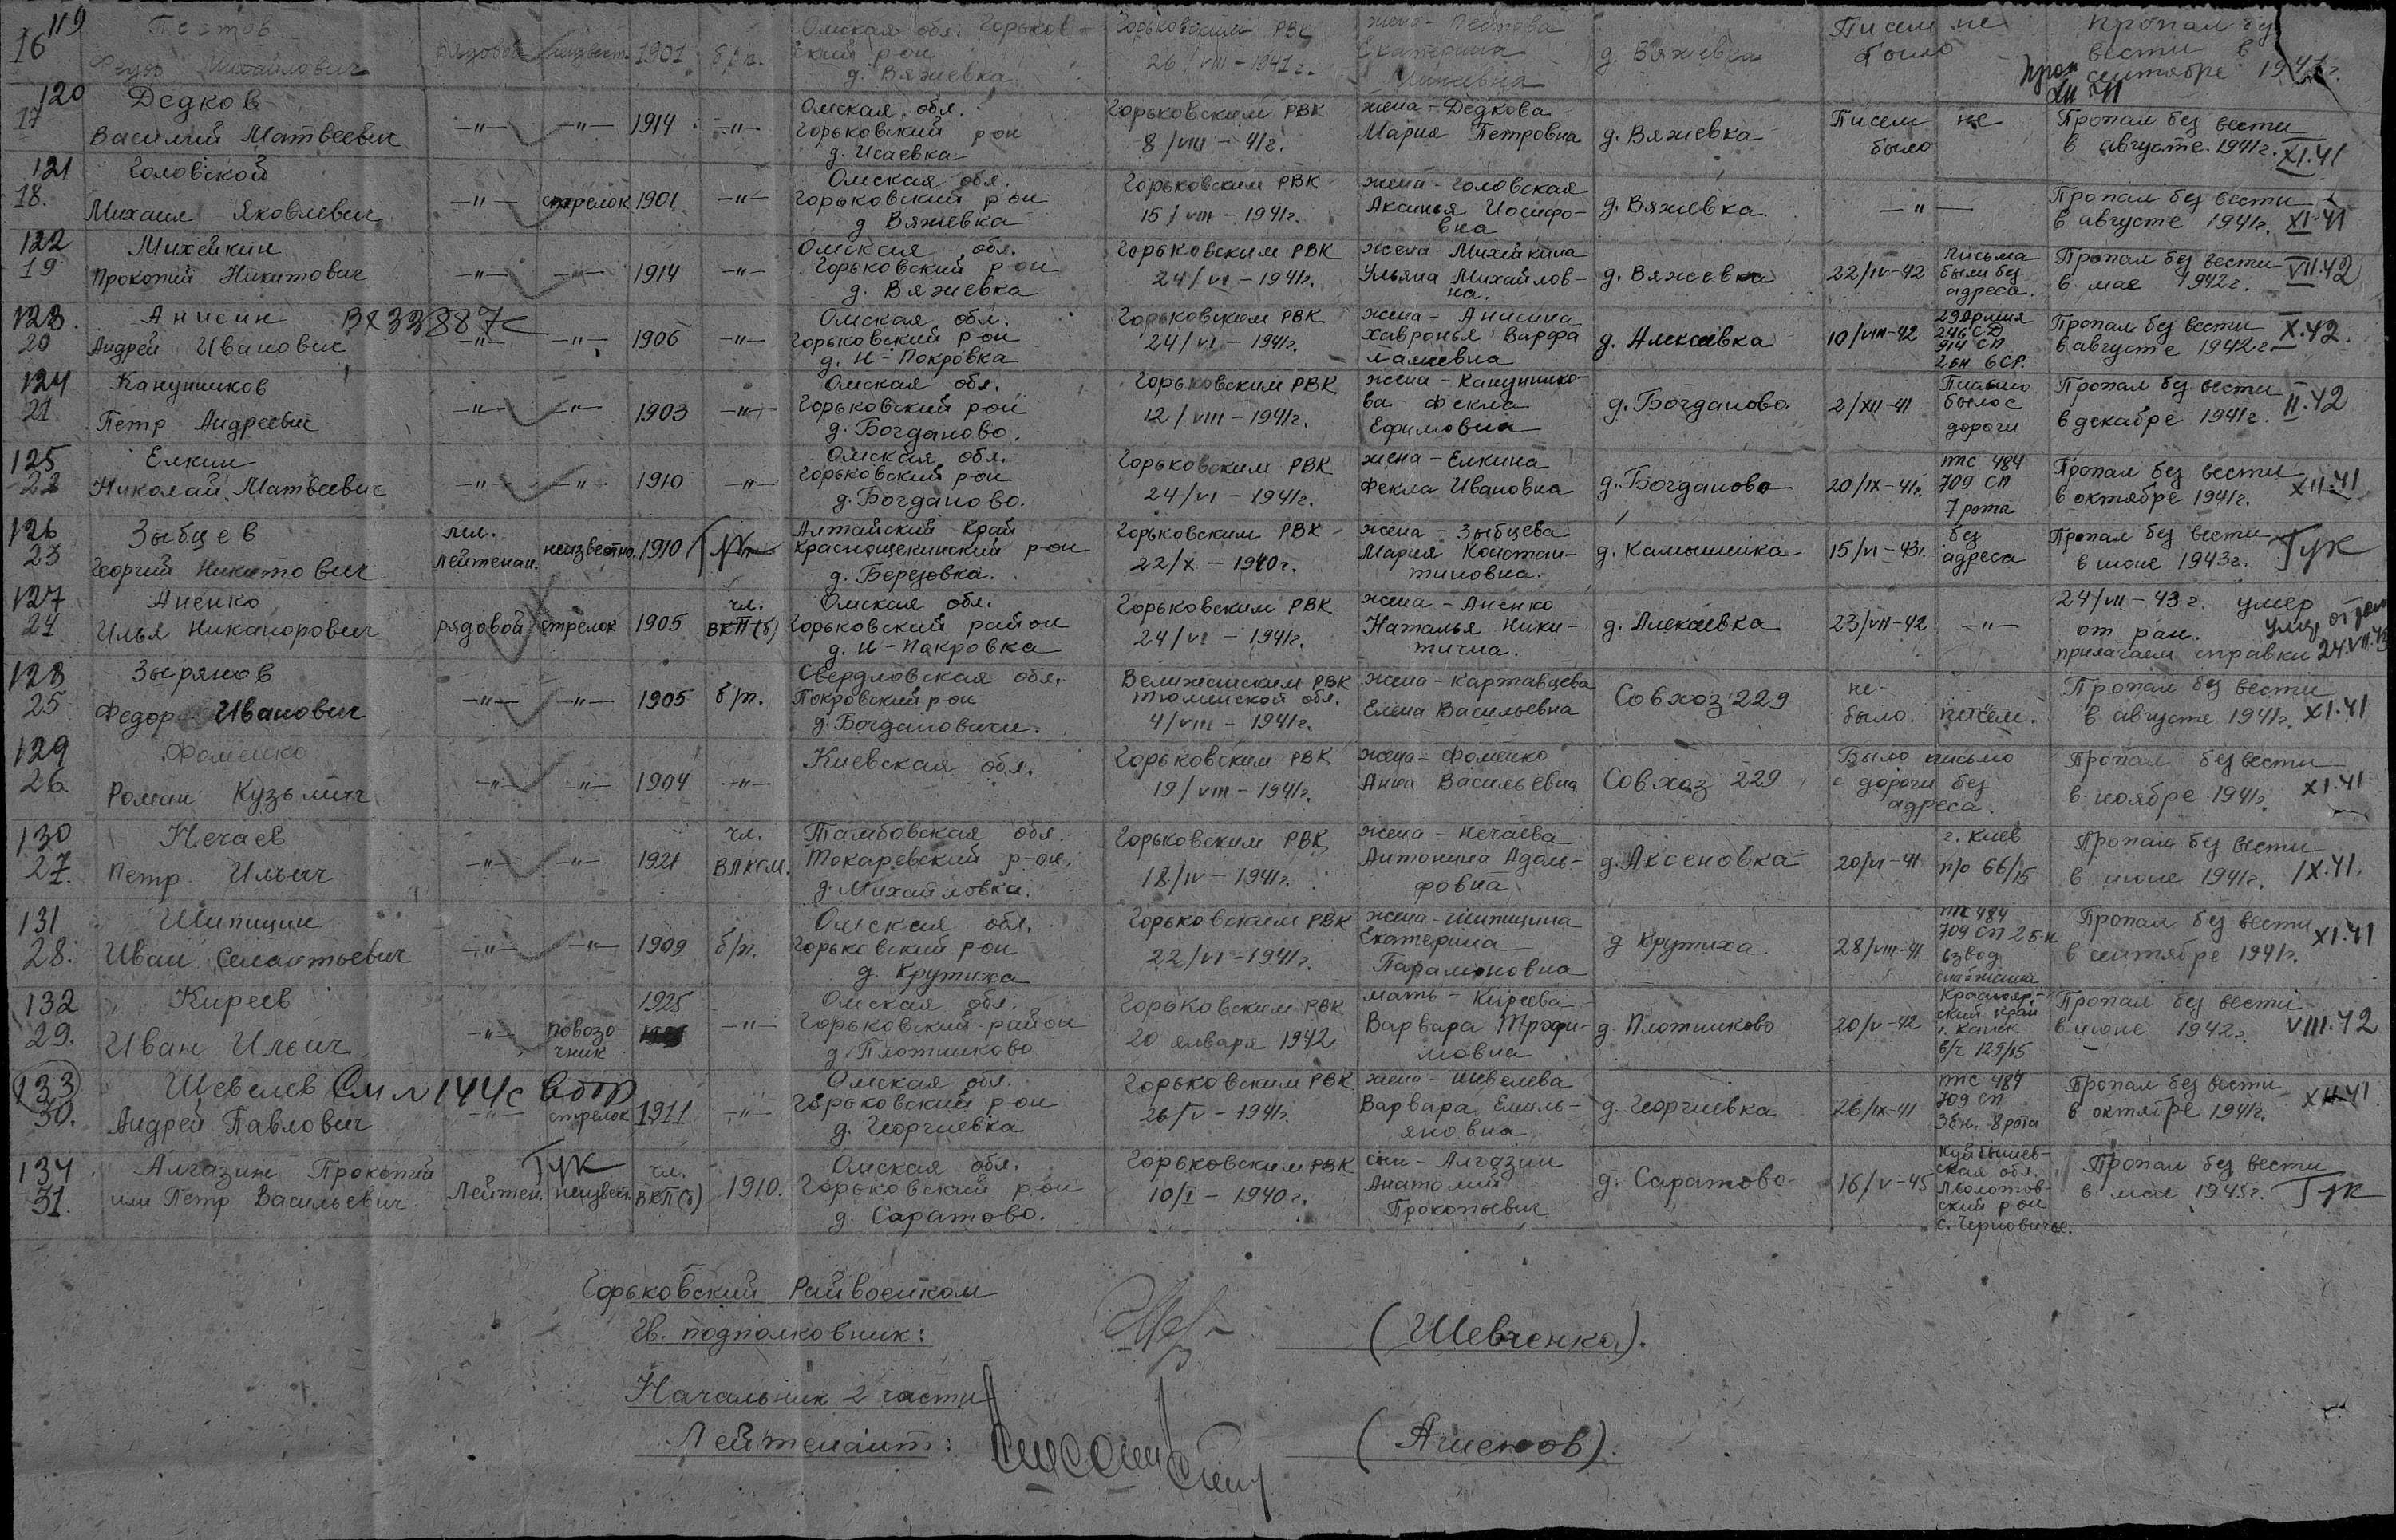 119
16 Пестов Федор Михайлович рядовой неизвест. 1901 б/п. Омская обл. Горьковский р-он д. Вяжевка Горьковским РВК 26/VIII-1941г. жена - Пестова Екатерина д. Вяжевка Писем не было Пропал без вести в сентябре 1941г. проп XII 41
120
17 Дедков Василий Матвеевич —"— —"— 1914 —"— Омская обл. Горьковский р-он д. Исаевка Горьковским РВК 8/VIII-41г. жена - Дедкова Мария Петровна д. Вяжевка Писем не было Пропал без вести в августе 1941г. XI.41
121
18. Головской Михаил Яковлевич —"— стрелок 1901 —"— Омская обл. Горьковский р-он д Вяжевка Горьковским РВК 15/VIII-1941г. жена - Головская Аксинья Иосифовна д. Вяжевка —"— Пропал без вести в августе 1941г. XI-41
122
19 Михейкин Прокопий Никитович —"— —"— 1914 —"— Омская обл. Горьковский р-он д. Вяжевка Горьковским РВК 24/VI-1941г. жена - Михейкина Ульяна Михайловна. д. Вяжевка 22/IV-42 письма были без адреса. Пропал без вести в мае 1942г. VII.42
123.
20 Анисин Андрей Иванович ВХ33887с —"— —"— 1906 —"— Омская обл. Горьковский р-он д. Н-Покровка Горьковским РВК 24/VI-1941г. жена - Анисина Хавронья Варфаламеевна д. Алексеевка 10/VIII-42 29 Армия 246 СД 914 СП 2бн 6СР. Пропал без вести в августе 1942г. X.42.
124
21 Канунников Петр Андреевич —"— —"— 1903 —"— Омская обл. Горьковский р-он д. Богданово. Горьковским РВК 12/VIII-1941г. жена - Канунникова Фекла Ефимовна д. Богданово. 2/XII-41 Письмо было с дороги Пропал без вести в декабре 1941г. II.42
125
22 Елкин Николай Матвеевич —"— —"— 1910 —"— Омская обл. Горьковский р-он д. Богданово. Горьковским РВК 24/VI-1941г. жена - Елкина Фекла Ивановна д. Богданово 20/IX-41г. ппс 484 709 СП 7 рота Пропал без вести в октябре 1941г. XII.41
126
23 Зыбцев Георгий Никитович мл. лейтенан. неизвестно. 1910 Алтайский край Краснощекинский р-он д. Березовка. Горьковским РВК 22/X-1940г. жена - Зыбцева Мария Константиновна. д. Камышинка 15/VI-43г. без адреса Пропал без вести в июне 1943г. ГУК
127
24 Аненко Илья Никанорович рядовой стрелок 1905 чл. ВКП(б) Омская обл. Горьковский район д. Н-Пакровка Горьковским РВК 24/VI-1941г. жена - Аненко Наталья Никитична. д. Алексеевка 23/VII-42 —"— 24/VII-43г. умер от ран. прилагаем справки умер от ран 24.VII.43
128
25 Зырянов Федор Иванович —"— —"— 1905 б/п. Свердловская обл. Покровский р-он д. Богдановичи. Велижанским РВК Тюменской обл. 4/VIII-1941г. жена - Картавцева Елена Васильевна Совхоз 229 не было. писем. Пропал без вести в августе 1941г. XI.41
129
26. Фоменко Роман Кузьмич —"— —"— 1904 —"— Киевская обл. Горьковским РВК 19/VIII-1941г. жена - Фоменко Анна Васильевна Совхоз 229 Было письмо с дороги без адреса. Пропал без вести в ноябре 1941г. XI.41
130
27. Нечаев Петр Ильич —"— —"— 1921 чл. ВЛКСМ. Тамбовская обл. Токаревский р-он. д. Михайловка. Горьковским РВК 18/IV-1941г. жена - Нечаева Антонина Адольфовна д. Аксеновка 20/VI-41 г. Киев п/о 66/15 Пропал без вести в июне 1941г. IX.41.
131
28. Шипицин Иван Селантьевич —"— —"— 1909 б/п. Омская обл. Горьковский р-он д. Крутиха Горьковским РВК 22/VI-1941г. жена - Шипицина Екатерина Парамоновна д Крутиха 28/VIII-41 ппс 484 709 СП 2 б-н взвод снабжения Пропал без вести в сентябре 1941г. XI.41
132
29. Киреев Иван Ильич —"— повозочник 1925 —"— Омская обл. Горьковский район д. Плотниково Горьковским РВК 20 января 1942 мать - Киреева Варвара Трофимовна д. Плотниково 20/V-42 Красноярский край г. Канск в/ч 129/15 Пропал без вести в июне 1942г. VIII.42
133
30. Шевелев Андрей Павлович См л 144с —"— стрелок 1911 —"— Омская обл. Горьковский р-он д. Георгиевка Горьковским РВК 26/V-1941г. жена - Шевелева Варвара Емельяновна д. Георгиевка 26/IX-41 ппс 484 709 СП 3бн. 8 рота Пропал без вести в октябре 1941г. XII.41.
134
31. Алгазин Прокопий или Петр Васильевич ГУК Лейтен. неизвест. чл. ВКП(б) 1910. Омская обл. Горьковский р-он д. Саратово. Горьковским РВК 10/I-1940г. сын - Алгазин Анатолий Прокопьевич д. Саратово 16/V-45 Куйбышевская обл. Молотовский р-он Пропал без вести в мае 1945г. ГУК
Горьковский Райвоенком
Гв. подполковник: (Шевченко).
Начальник 2 части
Лейтенант: